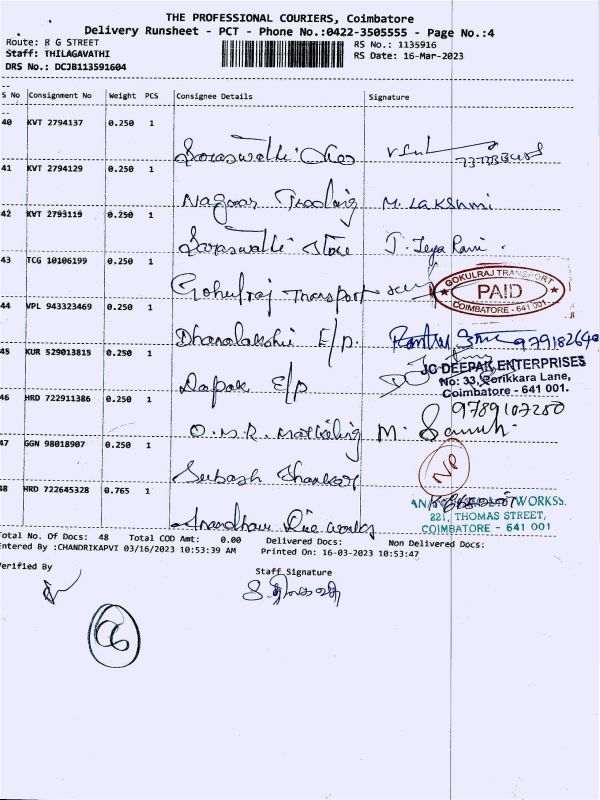 THE PROFESSIONAL COURIERS, Coimbatore
Delivery Runsheet - PCT - Phone No.:0422-3505555 - Page No.:4
Route: R G STREET
RS No.: 1135916
Staff: THILAGAVATHI
RS Date: 16-Mar-2023
DRS No.: DCJB113591604
S No Consignment No Weight PCS Consignee Details Signature
40 KVT 2794137 0.250 1
Saraswathi
41 KVT 2794129 0.250 1
Nagoor Trading M. Lakshmi
42 KVT 2793119 0.250 1
Saraswathi Store J. Jeya Rani.
43 TCG 10106199 0.250 1
Gokulraj Transport
GOKULRAJ TRANSPORT
PAID
COIMBATORE - 641 001
44 VPL 943323469 0.250 1
Dhanalakshmi E/p.
45 KUR 529013815 0.250 1
Dapak E/p
JC DEEPAK ENTERPRISES
No: 33, Gorikkara Lane,
Coimbatore - 641 001.
46 HRD 722911386 0.250 1
9789107280
O.M.R M.
47 GGN 98018907 0.250 1
Subash Shankar NP
48 HRD 722645328 0.765 1
Anandhan Die works
WORKSS.
221, THOMAS STREET,
COIMBATORE - 641 001
Total No. Of Docs: 48 Total COD Amt: 0.00 Delivered Docs: Non Delivered Docs:
Entered By :CHANDRIKAPVI 03/16/2023 10:53:39 AM Printed On: 16-03-2023 10:53:47
Verified By Staff Signature